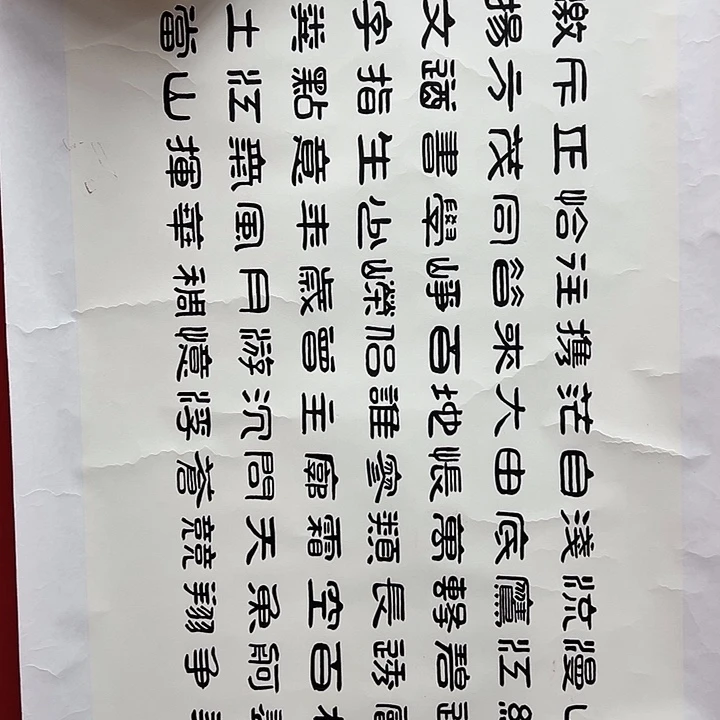 漫江碧透百舸爭
流鷹擊長空魚翔
淺底萬類霜天競
自由悵寥廓問蒼
茫大地誰主沉浮
攜來百侶曾游憶
往昔崢嶸歲月稠
恰同學少年風華
正茂書生意氣揮
斥方遒指點江山
激揚文字糞土當